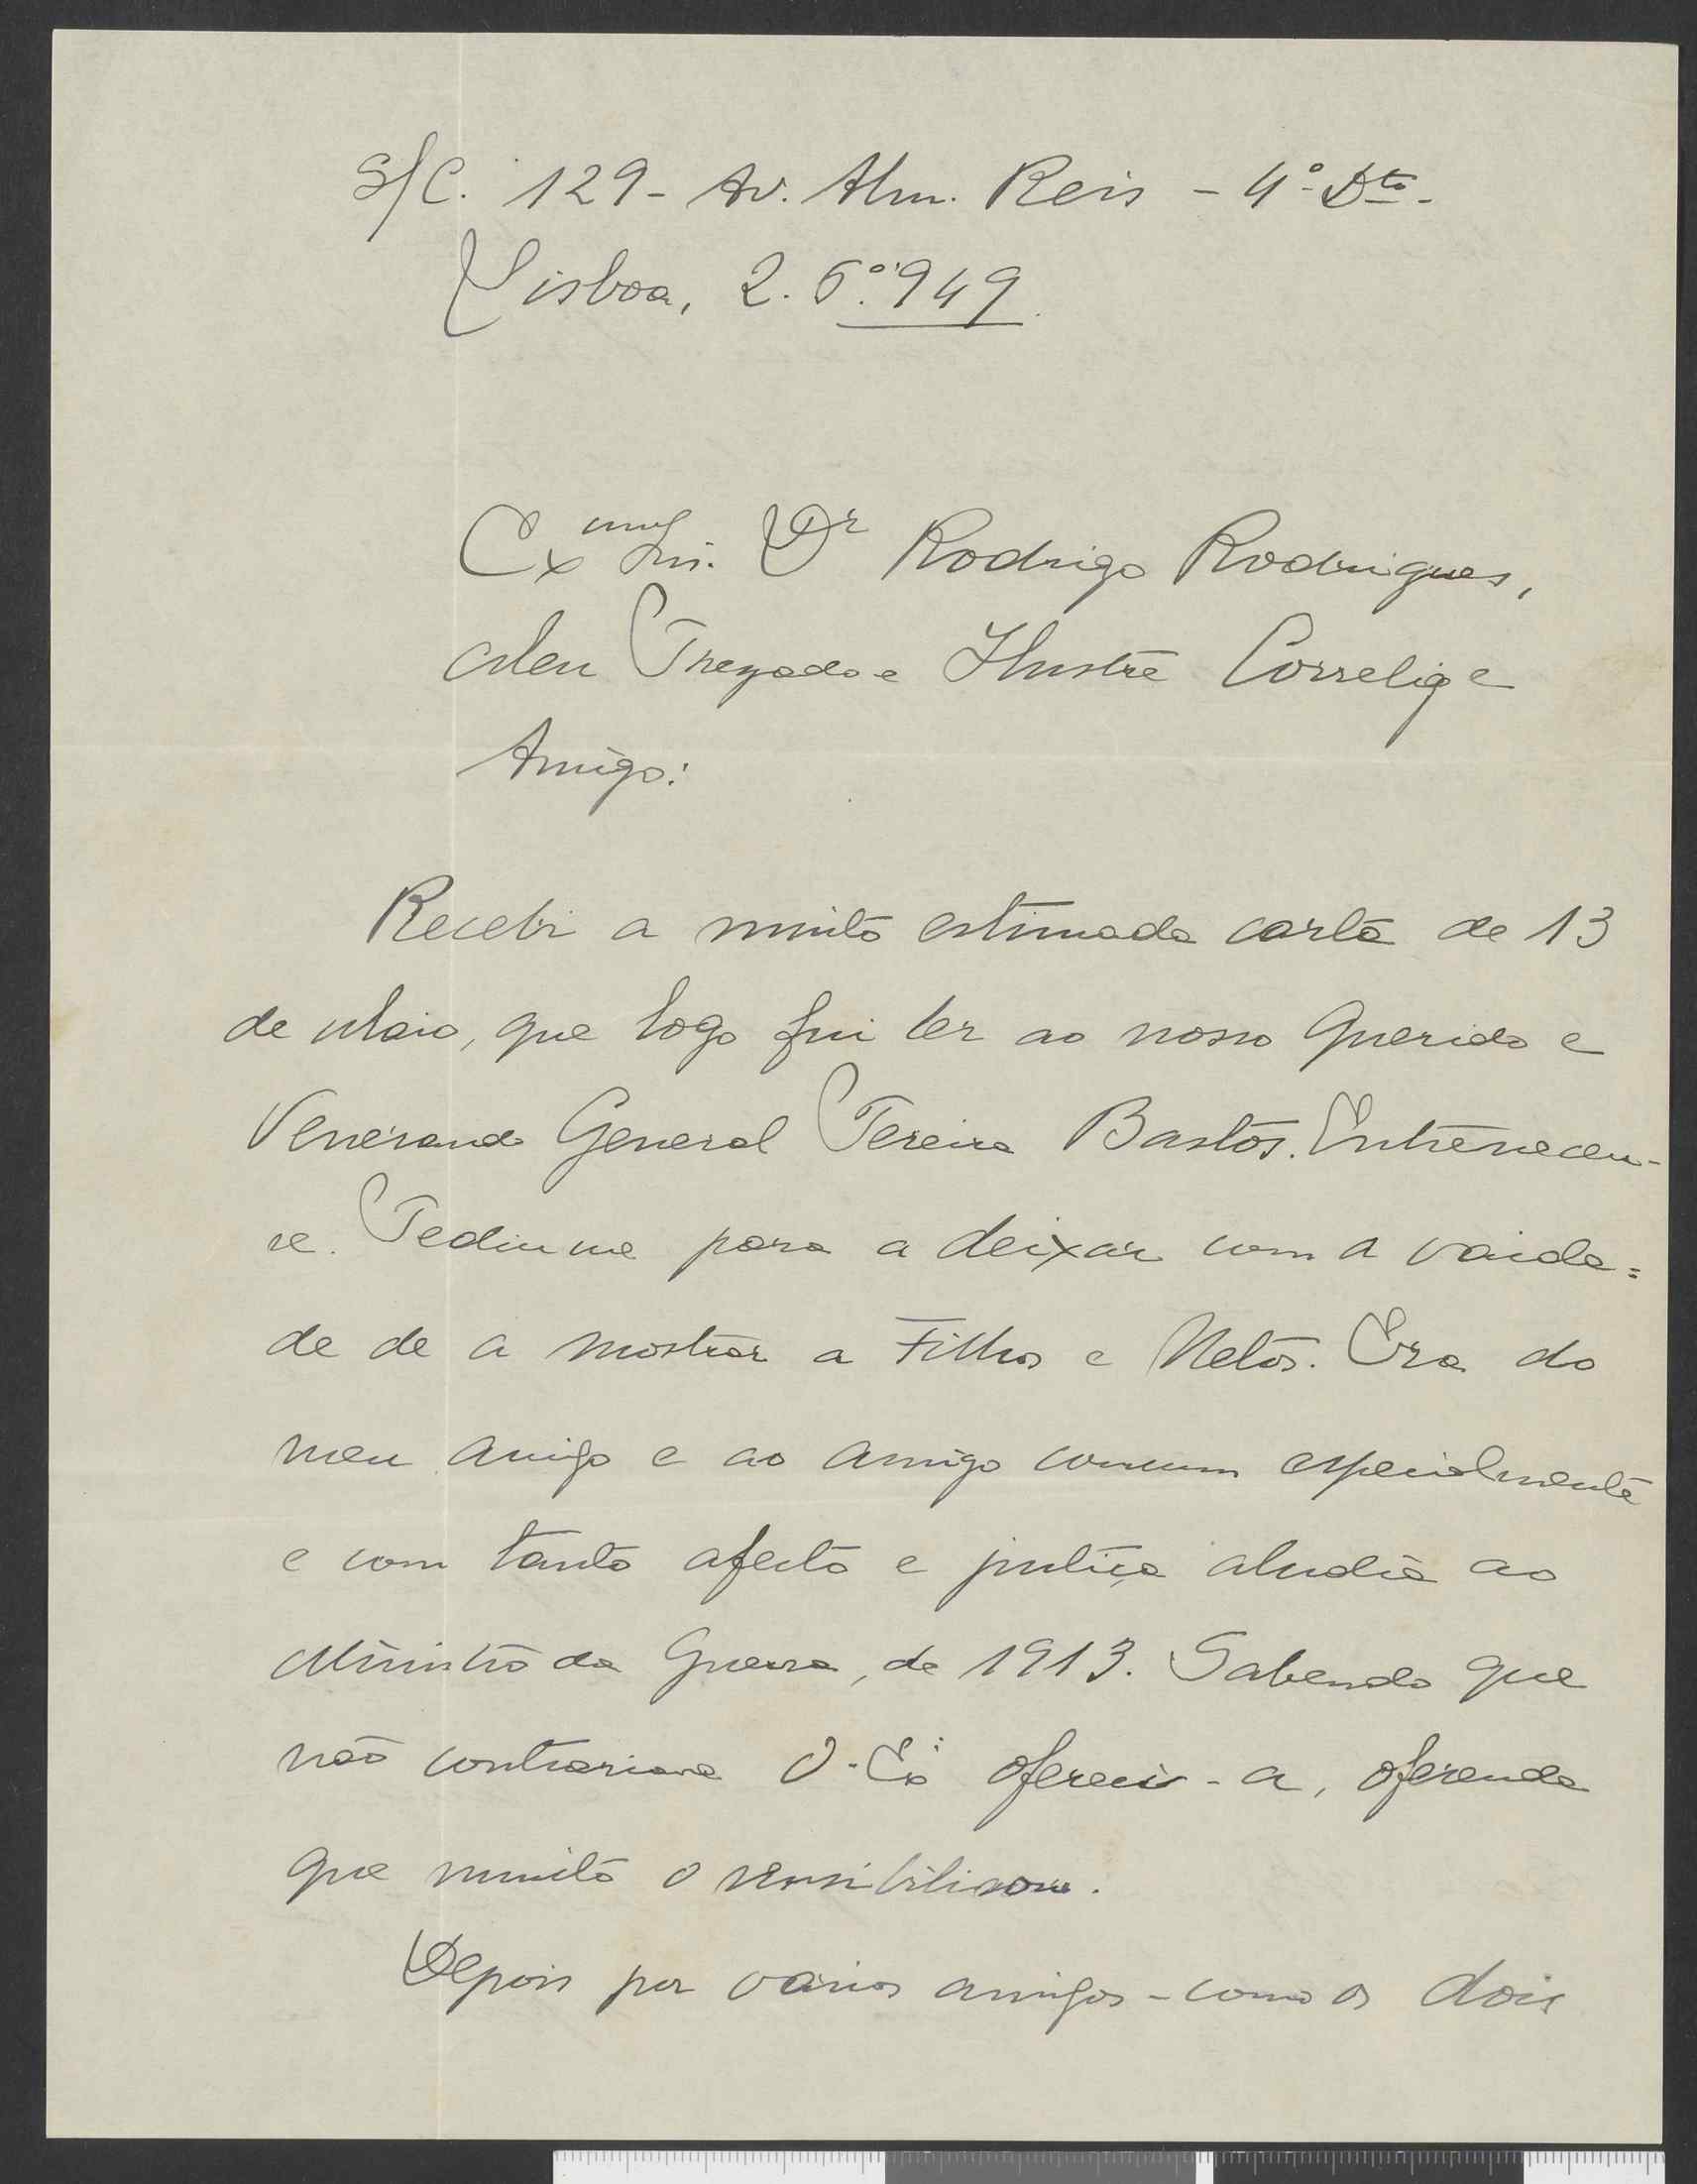 S/C. 129 - Av. Alm. Reis - 4º Dto.
Lisboa, 2. 6º. 949.
Exmo Sr. Dr Rodrigo Rodrigues,
Meu Prezado e Ilustre Correlig e
Amigo:
Recebi a muito estimada carta de 13
de Maio, que logo fui ler ao nosso querido e
Venerando General Pereira Bastos. Enterneceu-
se. Pediu me para a deixar com a vaida=
de de a mostrar a Filhos e Netos. Era do
meu amigo e ao amigo comum especialmente
e com tanto afecto e justiça aludia ao
Ministro da Guerra, de 1913. Sabendo que
não contrariava V. Exª ofereci-a, oferenda
que muito o sensibilisou.
Depois por vários amigos - como os dois